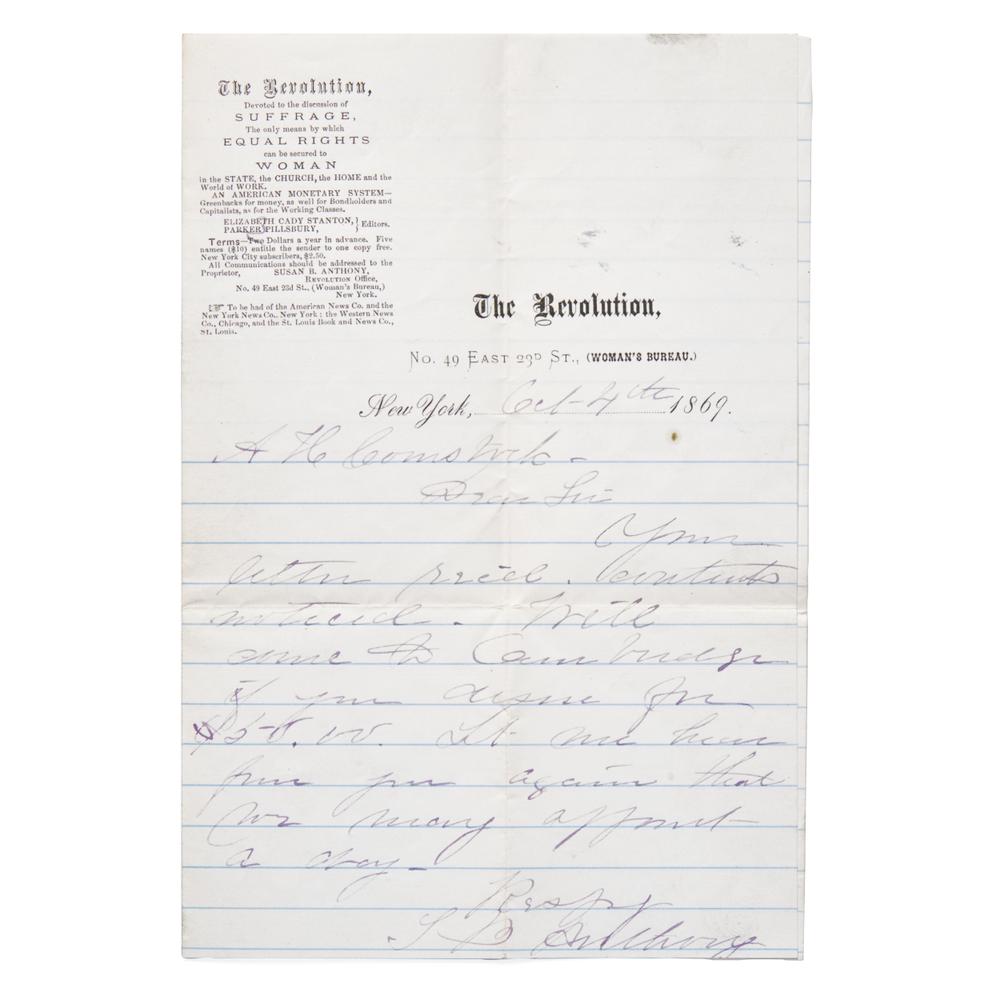 The Revolution,
Devoted to the discussion of
SUFFRAGE,
The only means by which
EQUAL RIGHTS
can be secured to
WOMAN
in the STATE, the CHURCH, the HOME and the
World of WORK.
AN AMERICAN MONETARY SYSTEM—
Greenbacks for money, as well for Bondholders and
Capitalists, as for the Working Classes.
ELIZABETH CADY STANTON, } Editors.
PARKER PILLSBURY,
Terms—Two Dollars a year in advance. Five
names ($10) entitle the sender to one copy free.
New York City subscribers, $2.50.
All Communications should be addressed to the
Proprietor, SUSAN B. ANTHONY,
REVOLUTION Office,
No. 49 East 23d St., (Woman's Bureau,)
New York.
☞ To be had of the American News Co. and the
New York News Co., New York; the Western News
Co., Chicago, and the St. Louis Book and News Co.,
St. Louis.
The Revolution,
No. 49 EAST 23D ST., (WOMAN'S BUREAU.)
New York, Oct-4th 1869.
A H Comstock -
Dear Sir
Your
letter recied. Contents
noticed. Will
come to Cambridge
if you desire for
$50.00. Let me hear
from you again that
we may appoint
a day -
Respy
S B Anthony